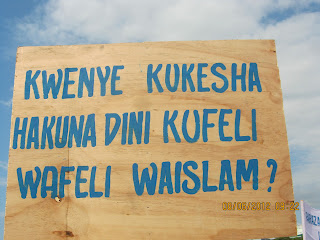 KWENYE KUKESHA
HAKUNA DINI KUFELI
WAFELI WAISLAM?